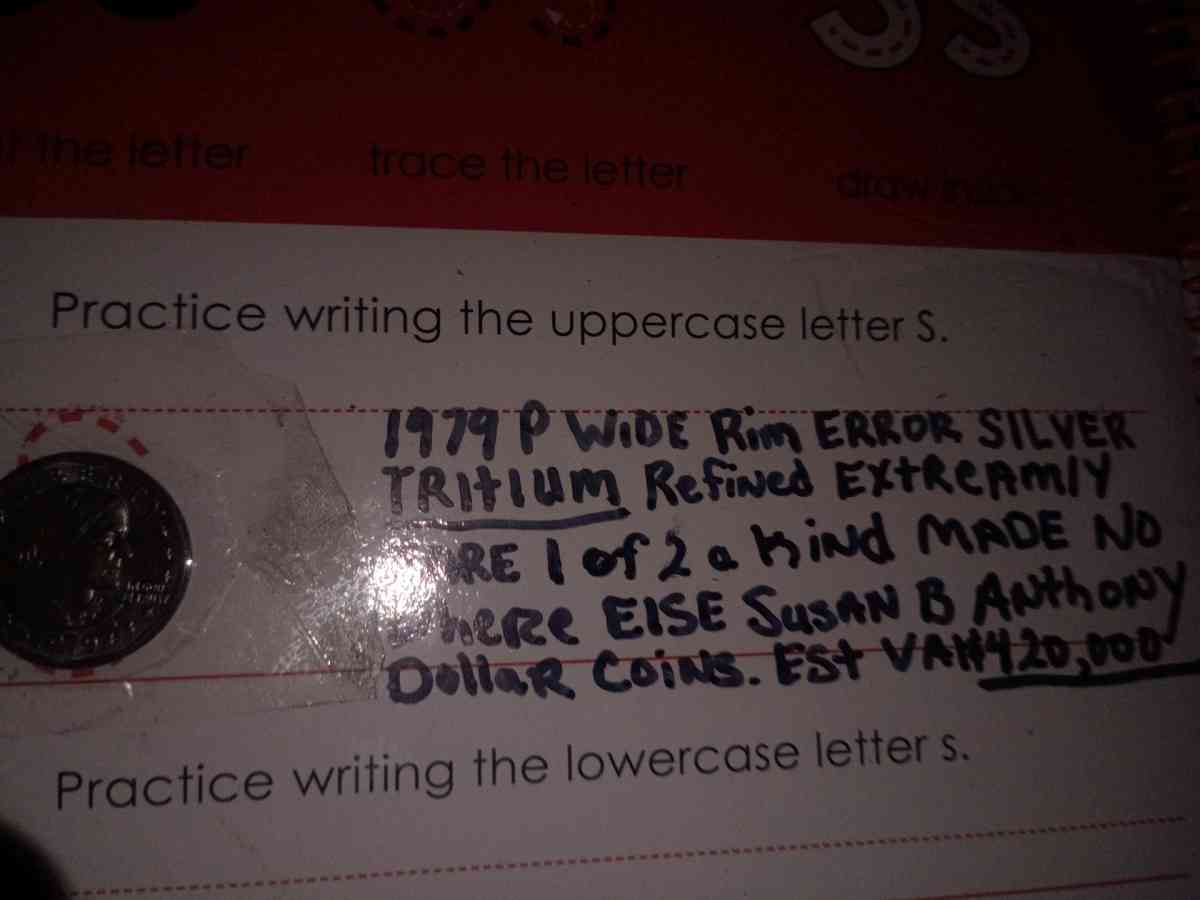 the letter
trace the letter
draw
Practice writing the uppercase letter S.
1979 P WiDE Rim ERROR SILVER
TRItIUM Refined ExtReAmly
1 of 2 a KiNd MADE No
ElSE SusAN B ANthoNY
DollaR CoiNs. ESt VAl $420,000
Practice writing the lowercase letter s.